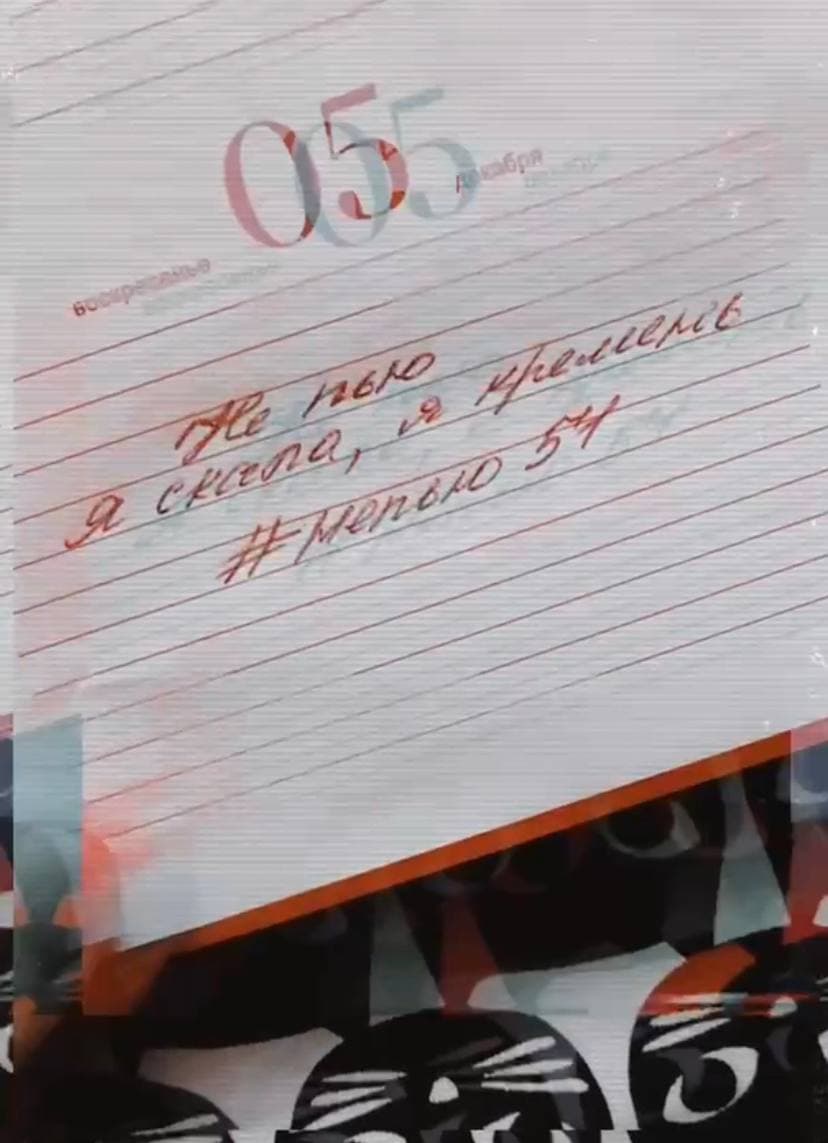 05
декабря
воскресенье
Не пью
Я скала, я кремень
#мепью 54